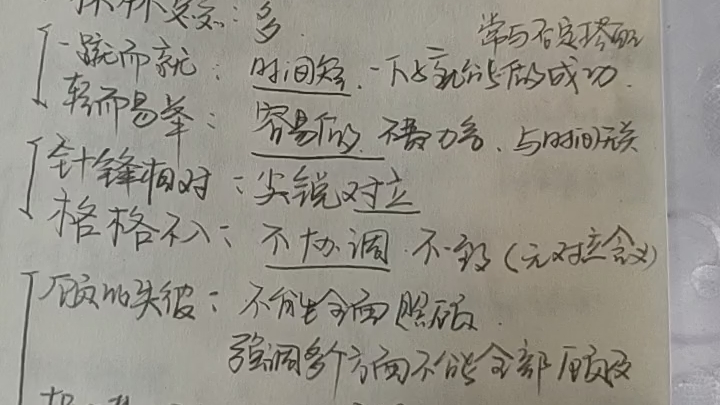 ：多
常与否定搭配
一蹴而就：时间短.一下子就能做成功.
轻而易举：容易做 不费力气、与时间无关
针锋相对：尖锐对立
格格不入：不协调.不一致（无对立含义）
顾此失彼：不能全面照顾.
强调多个方面不能全部顾及